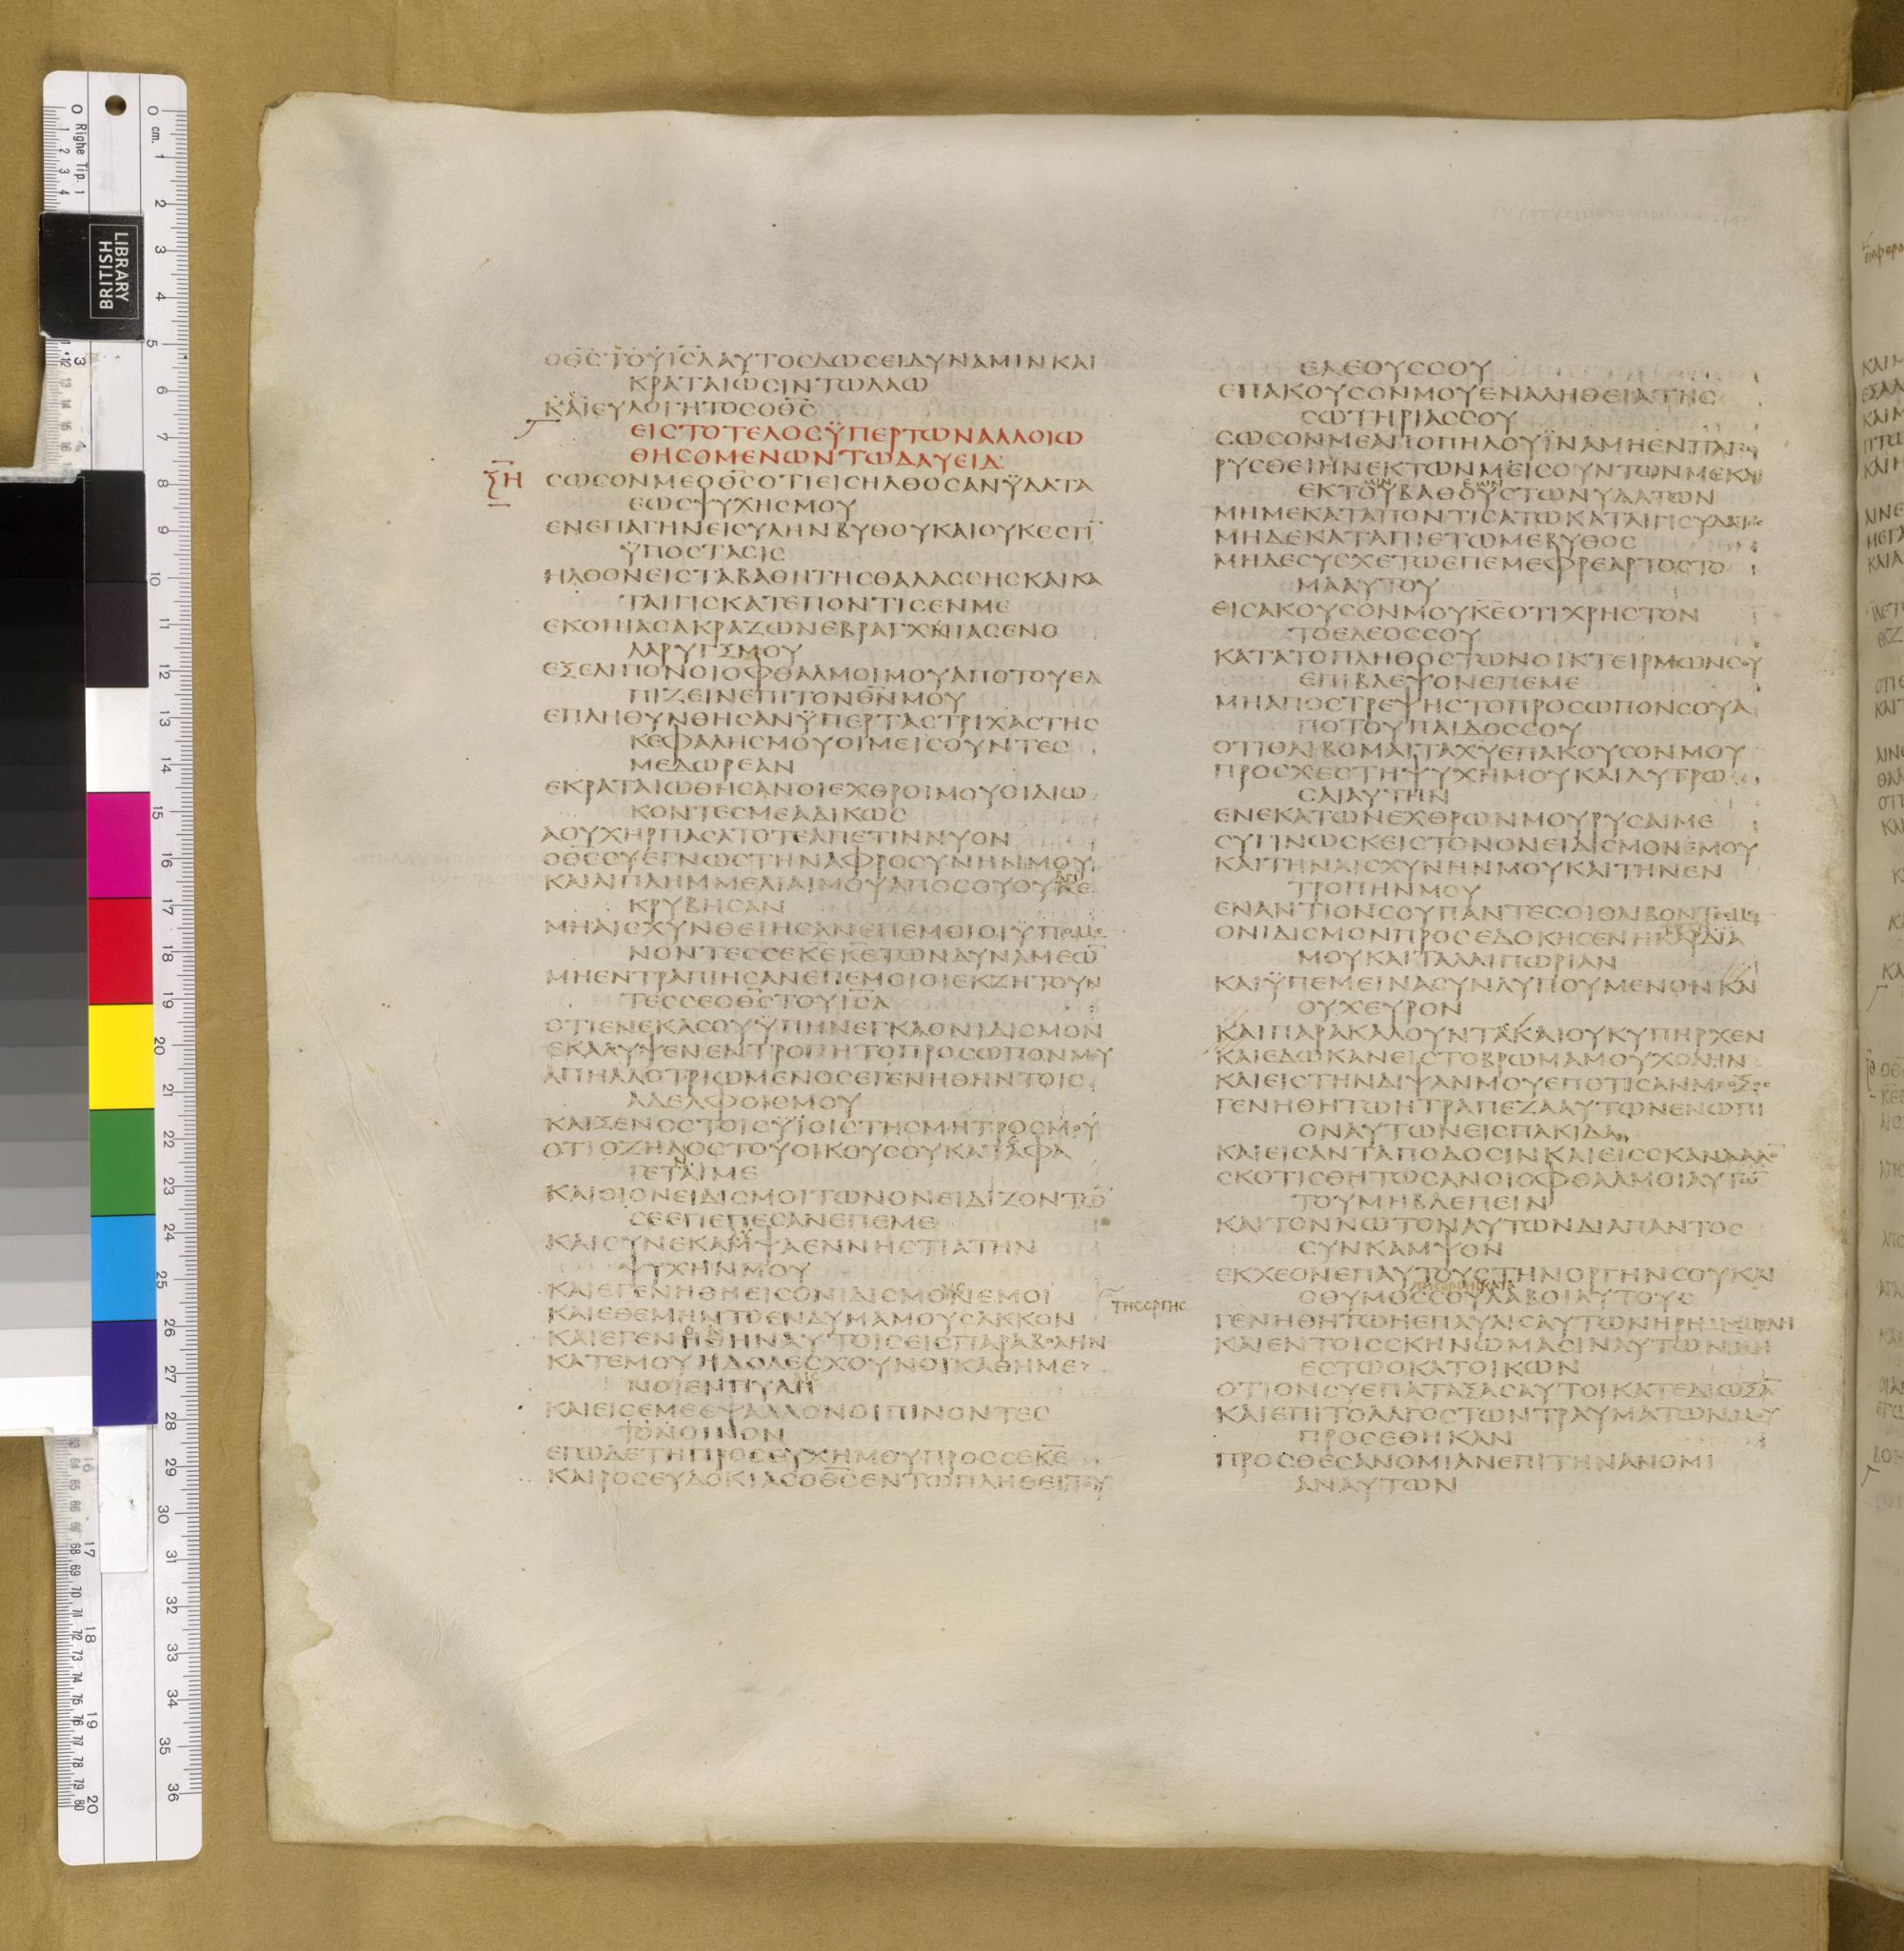 ΟΘΣΤΟΥΙΣΛΑΥΤΟΣΔΩΣΕΙΔΥΝΑΜΙΝΚΑΙ
ΚΡΑΤΑΙΩΣΙΝΤΩΛΑΩ
ΚΑΙΕΥΛΟΓΗΤΟΣΟΘΣ
ΕΙΣΤΟΤΕΛΟΣΫΠΕΡΤΩΝΑΛΛΟΙΩ
ΘΗΣΟΜΕΝΩΝΤΩΔΑΥΕΙΔ
ΞΗ
ΣΩΣΟΝΜΕΟΘΣΟΤΙΕΙΣΗΛΘΟΣΑΝΫΔΑΤΑ
ΕΩΣΨΥΧΗΣΜΟΥ
ΕΝΕΠΑΓΗΝΕΙΣΥΛΗΝΒΥΘΟΥΚΑΙΟΥΚΕΣΤΙ
ΫΠΟΣΤΑΣΙΣ
ΗΛΘΟΝΕΙΣΤΑΒΑΘΗΤΗΣΘΑΛΑΣΣΗΣΚΑΙΚΑ
ΤΑΙΓΙΣΚΑΤΕΠΟΝΤΙΣΕΝΜΕ
ΕΚΟΠΙΑΣΑΚΡΑΖΩΝΕΒΡΑΓΧΝΙΑΣΕΝΟ
ΛΑΡΥΓΞΜΟΥ
ΕΞΕΛΙΠΟΝΟΙΟΦΘΑΛΜΟΙΜΟΥΑΠΟΤΟΥΕΛ
ΠΙΖΕΙΝΕΠΙΤΟΝΘΝΜΟΥ
ΕΠΛΗΘΥΝΘΗΣΑΝΫΠΕΡΤΑΣΤΡΙΧΑΣΤΗΣ
ΚΕΦΑΛΗΣΜΟΥΟΙΜΕΙΣΟΥΝΤΕΣ
ΜΕΔΩΡΕΑΝ
ΕΚΡΑΤΑΙΩΘΗΣΑΝΟΙΕΧΘΡΟΙΜΟΥΟΙΔΙΩ
ΚΟΝΤΕΣΜΕΑΔΙΚΩΣ
ΑΟΥΧΗΡΠΑΣΑΤΟΤΕΑΠΕΤΙΝΝΥΟΝ
ΟΘΣΣΥΕΓΝΩΣΤΗΝΑΦΡΟΣΥΝΗΝΜΟΥ
ΚΑΙΑΙΠΛΗΜΜΕΛΙΑΙΜΟΥΑΠΟΣΟΥΟΥΚΕ
ΚΡΥΒΗΣΑΝ
ΜΗΑΙΣΧΥΝΘΕΙΗΣΑΝΕΠΕΜΘΙΟΙΫΠΟΜΕ
ΝΟΝΤΕΣΣΕΚΕΚΕΤΩΝΔΥΝΑΜΕΩ
ΜΗΕΝΤΡΑΠΙΗΣΑΝΕΠΕΜΟΙΟΙΕΚΖΗΤΟΥΝ
ΤΕΣΣΕΟΘΣΤΟΥΙΣΛ
ΟΤΙΕΝΕΚΑΣΟΥΫΠΗΝΕΓΚΑΟΝΙΔΙΣΜΟΝ
ΕΚΑΛΥΨΕΝΕΝΤΡΟΠΗΤΟΠΡΟΣΩΠΟΝΜΟΥ
ΑΠΗΛΛΟΤΡΙΩΜΕΝΟΣΕΓΕΝΗΘΗΝΤΟΙΣ
ΑΔΕΛΦΟΙΣΜΟΥ
ΚΑΙΞΕΝΟΣΤΟΙΣΫΪΟΙΣΤΗΣΜΗΤΡΟΣΜΟΥ
ΟΤΙΟΖΗΛΟΣΤΟΥΟΙΚΟΥΣΟΥΚΑΤΑΦΑ
ΓΕΤΑΙΜΕ
ΚΑΙΟΙΟΝΕΙΔΙΣΜΟΙΤΩΝΟΝΕΙΔΙΖΟΝΤΩ
ΣΕΕΠΕΠΕΣΑΝΕΠΕΜΕ
ΚΑΙΣΥΝΕΚΑΜΨΑΕΝΝΗΣΤΙΑΤΗΝ
ΨΥΧΗΝΜΟΥ
ΚΑΙΕΓΕΝΗΘΗΕΙΣΟΝΙΔΙΣΜΟΝΕΜΟΙ
ΚΑΙΕΘΕΜΗΝΤΟΕΝΔΥΜΑΜΟΥΣΑΚΚΟΝ
ΚΑΙΕΓΕΝΗΘΗΝΑΥΤΟΙΣΕΙΣΠΑΡΑΒΟΛΗΝ
ΚΑΤΕΜΟΥΗΔΟΛΕΣΧΟΥΝΟΙΚΑΘΗΜΕ
ΝΟΙΕΝΠΥΛΗ
ΚΑΙΕΙΣΕΜΕΕΨΑΛΛΟΝΟΙΠΙΝΟΝΤΕΣ
ΤΟΝΟΙΝΟΝ
ΕΓΩΔΕΤΗΠΡΟΣΕΥΧΗΜΟΥΠΡΟΣΣΕΚΕ
ΚΑΙΡΟΣΕΥΔΟΚΙΑΣΟΘΣΕΝΤΩΠΛΗΘΕΙΤΟΥ
ΕΛΕΟΥΣΣΟΥ
ΕΠΑΚΟΥΣΟΝΜΟΥΕΝΑΛΗΘΕΙΑΤΗΣ
ΣΩΤΗΡΙΑΣΣΟΥ
ΣΩΣΟΝΜΕΑΠΟΠΗΛΟΥΪΝΑΜΗΕΝΠΑΓΩ
ΡΥΣΘΕΙΗΝΕΚΤΩΝΜΕΙΣΟΥΝΤΩΝΜΕΚΑΙ
ΕΚΤΟΥΒΑΘΟΥΣΤΩΝΥΔΑΤΩΝ
ΜΗΜΕΚΑΤΑΠΟΝΤΙΣΑΤΩΚΑΤΑΙΓΙΣΥΔΑΤΟΣ
ΜΗΔΕΚΑΤΑΠΙΕΤΩΜΕΒΥΘΟΣ
ΜΗΔΕΣΥΣΧΕΤΩΕΠΕΜΕΦΡΕΑΡΤΟΣΤΟ
ΜΑΑΥΤΟΥ
ΕΙΣΑΚΟΥΣΟΝΜΟΥΚΕΟΤΙΧΡΗΣΤΟΝ
ΤΟΕΛΕΟΣΣΟΥ
ΚΑΤΑΤΟΠΛΗΘΟΣΤΩΝΟΙΚΤΕΙΡΜΩΝΣΟΥ
ΕΠΙΒΛΕΨΟΝΕΠΕΜΕ
ΜΗΑΠΟΣΤΡΕΨΗΣΤΟΠΡΟΣΩΠΟΝΣΟΥΑ
ΠΟΤΟΥΠΑΙΔΟΣΣΟΥ
ΟΤΙΘΛΙΒΟΜΑΙΤΑΧΥΕΠΑΚΟΥΣΟΝΜΟΥ
ΠΡΟΣΧΕΣΤΗΨΥΧΗΜΟΥΚΑΙΛΥΤΡΩ
ΣΑΙΑΥΤΗΝ
ΕΝΕΚΑΤΩΝΕΧΘΡΩΝΜΟΥΡΥΣΑΙΜΕ
ΣΥΓΙΝΩΣΚΕΙΣΤΟΝΟΝΕΙΔΙΣΜΟΝΕΜΟΥ
ΚΑΙΤΗΝΑΙΣΧΥΝΗΝΜΟΥΚΑΙΤΗΝΕΝ
ΤΡΟΠΗΝΜΟΥ
ΕΝΑΝΤΙΟΝΣΟΥΠΑΝΤΕΣΟΙΘΛΙΒΟΝΤΕΣΜΕ
ΟΝΙΔΙΣΜΟΝΠΡΟΣΕΔΟΚΗΣΕΝΗΚΑΡΔΙΑ
ΜΟΥΚΑΙΤΑΛΑΙΠΩΡΙΑΝ
ΚΑΙΫΠΕΜΕΙΝΑΣΥΝΛΥΠΟΥΜΕΝΟΝΚΑΙ
ΟΥΧΕΥΡΟΝ
ΚΑΙΠΑΡΑΚΑΛΟΥΝΤΑΚΑΙΟΥΚΥΠΗΡΧΕΝ
ΚΑΙΕΔΩΚΑΝΕΙΣΤΟΒΡΩΜΑΜΟΥΧΟΛΗΝ
ΚΑΙΕΙΣΤΗΝΔΙΨΑΝΜΟΥΕΠΟΤΙΣΑΝΜΕΟΞΟΣ
ΓΕΝΗΘΗΤΩΗΤΡΑΠΕΖΑΑΥΤΩΝΕΝΩΠΙ
ΟΝΑΥΤΩΝΕΙΣΠΑΚΙΔΑ
ΚΑΙΕΙΣΑΝΤΑΠΟΔΟΣΙΝΚΑΙΕΙΣΣΚΑΝΔΑΛΟ
ΣΚΟΤΙΣΘΗΤΩΣΑΝΟΙΟΦΘΑΛΜΟΙΑΥΤΩ
ΤΟΥΜΗΒΛΕΠΕΙΝ
ΚΑΙΤΟΝΝΩΤΟΝΑΥΤΩΝΔΙΑΠΑΝΤΟΣ
ΣΥΝΚΑΜΨΟΝ
ΕΚΧΕΟΝΕΠΑΥΤΟΥΣΤΗΝΟΡΓΗΝΣΟΥΚΑΙ
ΤΗΣΟΡΓΗΣ
ΟΘΥΜΟΣΣΟΥΛΑΒΟΙΑΥΤΟΥΣ
ΓΕΝΗΘΗΤΩΗΕΠΑΥΛΙΣΑΥΤΩΝΗΡΗΜΩΜΕΝΗ
ΚΑΙΕΝΤΟΙΣΣΚΗΝΩΜΑΣΙΝΑΥΤΩΝΜΗ
ΕΣΤΩΟΚΑΤΟΙΚΩΝ
ΟΤΙΟΝΣΥΕΠΑΤΑΞΑΣΑΥΤΟΙΚΑΤΕΔΙΩΞΑ
ΚΑΙΕΠΙΤΟΑΛΓΟΣΤΩΝΤΡΑΥΜΑΤΩΝΜΟΥ
ΠΡΟΣΕΘΗΚΑΝ
ΠΡΟΣΘΕΣΑΝΟΜΙΑΝΕΠΙΤΗΝΑΝΟΜΙ
ΑΝΑΥΤΩΝ